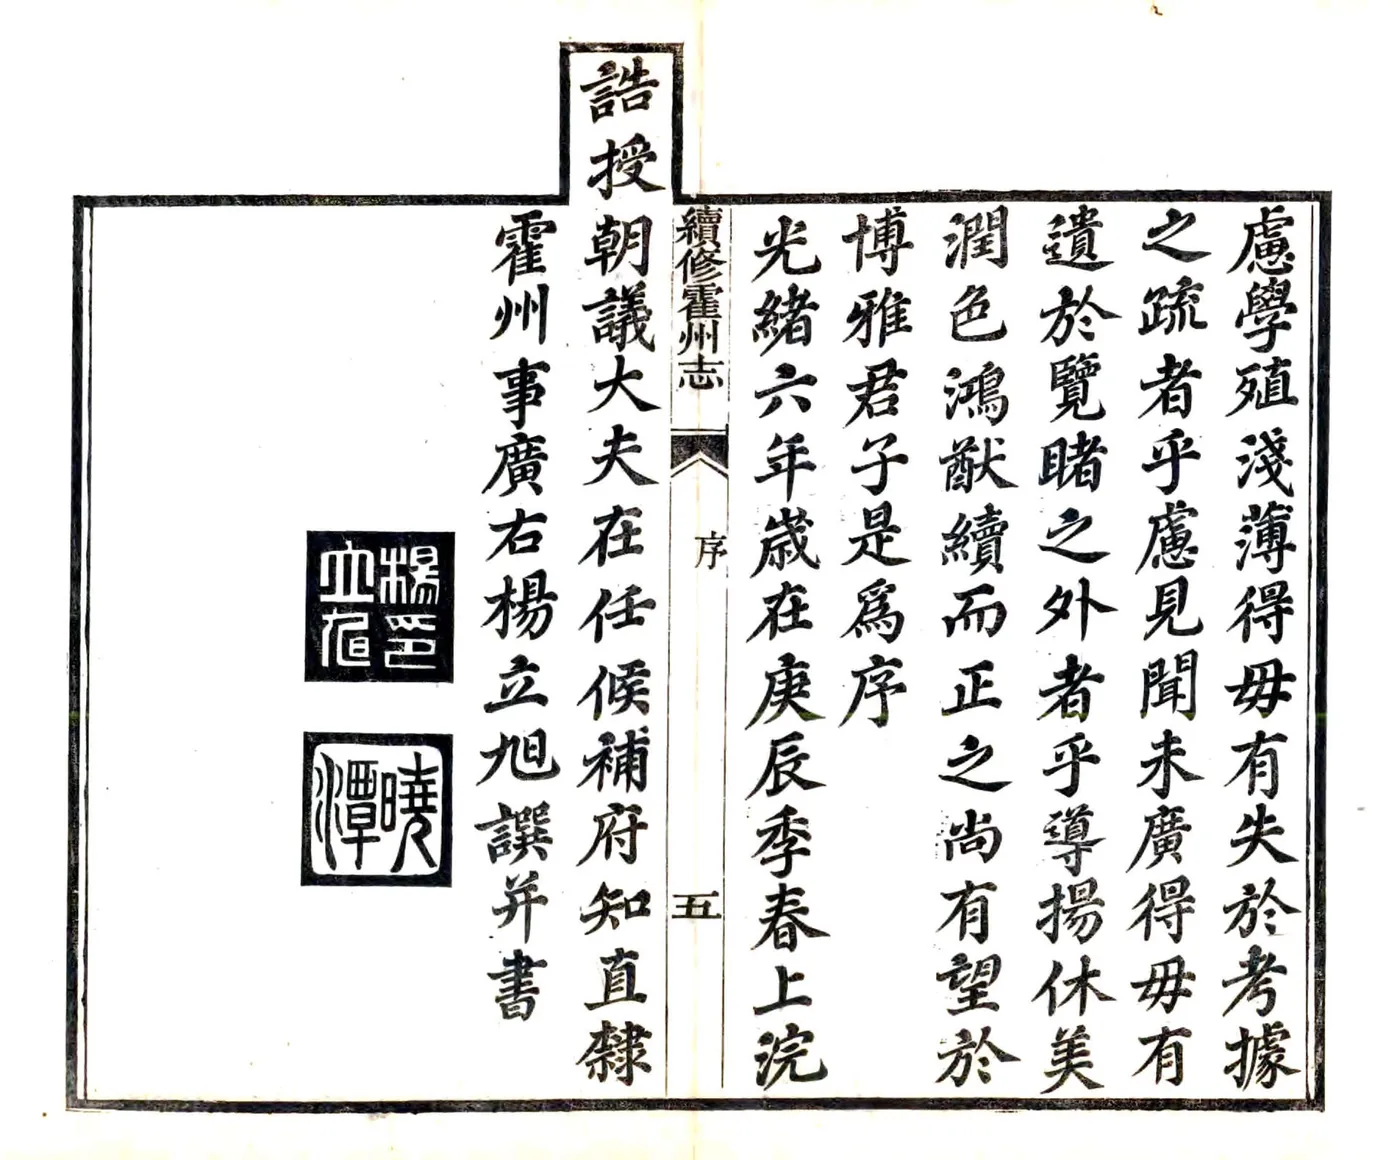 慮學殖淺薄得毋有失於考據
之疏者乎慮見聞未廣得毋有
遺於覽睹之外者乎導揚休美
潤色鴻猷續而正之尚有望於
博雅君子是爲序
光緒六年歲在庚辰季春上浣
續修霍州志
序
五
誥授朝議大夫在任候補府知直隸
霍州事廣右楊立旭譔并書
楊印
立旭
曉
潭